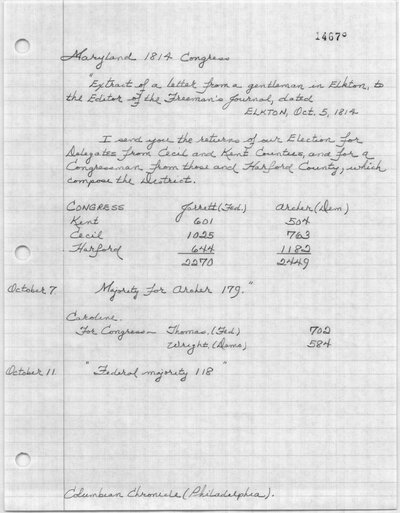 1467⁸
Maryland 1814 Congress
"Extract of a letter from a gentleman in Elkton, to
the Editor of the Freeman's Journal, dated
ELKTON, Oct. 5, 1814
I send you the returns of our Election for
Delegates from Cecil and Kent Counties, and for a
Congressman from those and Harford County, which
compose the District.
CONGRESS Jarrett (Fed.) Archer (Dem)
Kent 601 504
Cecil 1025 763
Harford 644 1182
2270 2449
October 7 Majority for Archer 179."
Caroline.
For Congress— Thomas, (Fed) 702
Wright, (Demo) 584
October 11 "Federal majority 118"
Columbian Chronicle (Philadelphia).